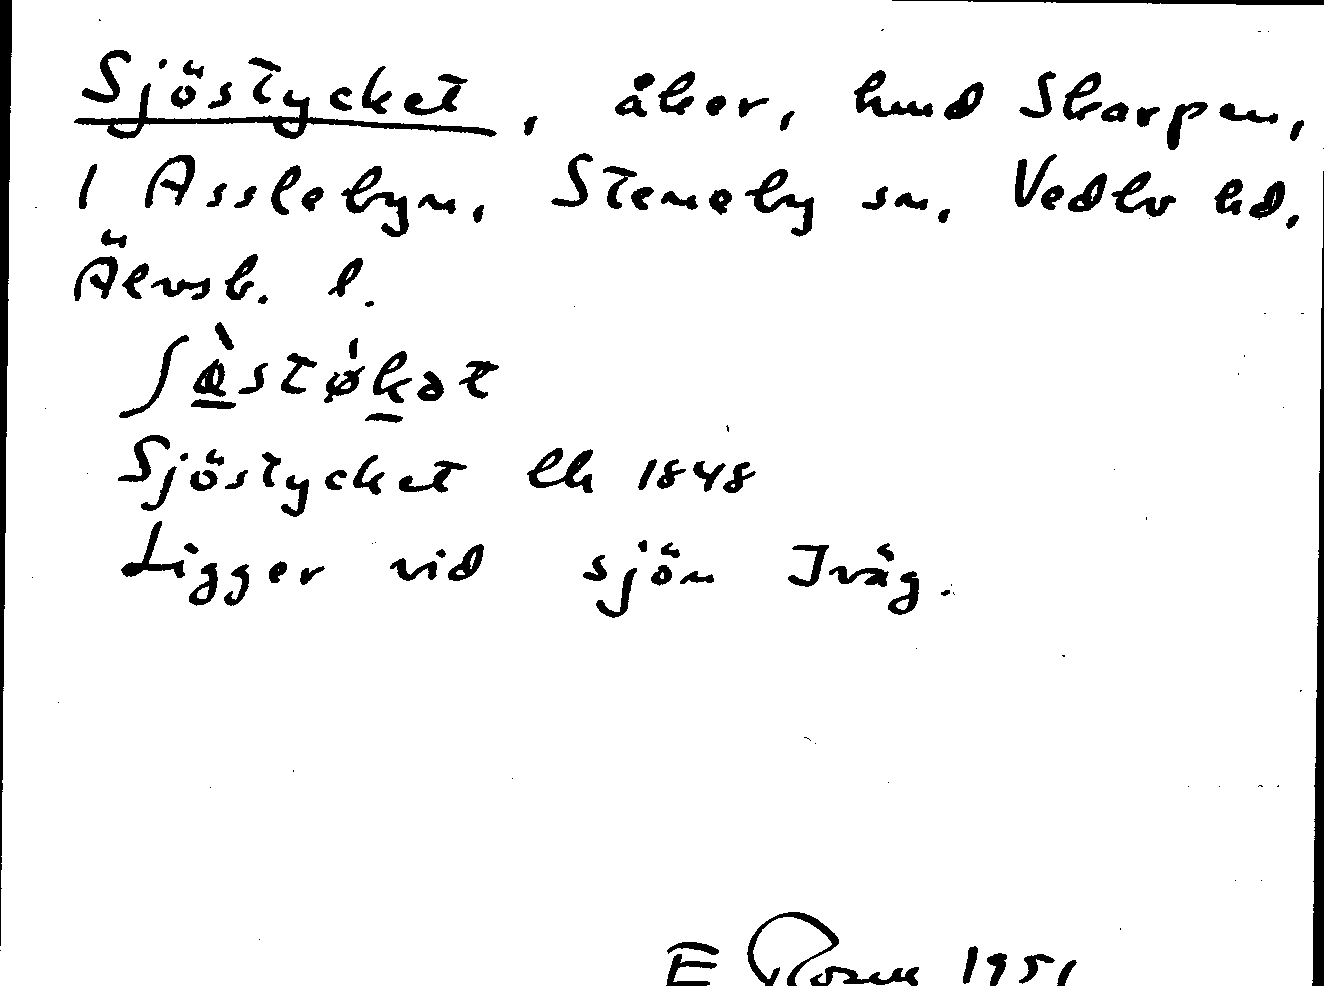 Sjöstycket, åker, hmd Skarpen,
1 Asslebyn. Steneby sn. Vedbo hd.
Älvsb. l.
ʃø̀stø̍kət
Sjöstycket lk 1848
Ligger vid sjön Iväg.
E Rosen 1951